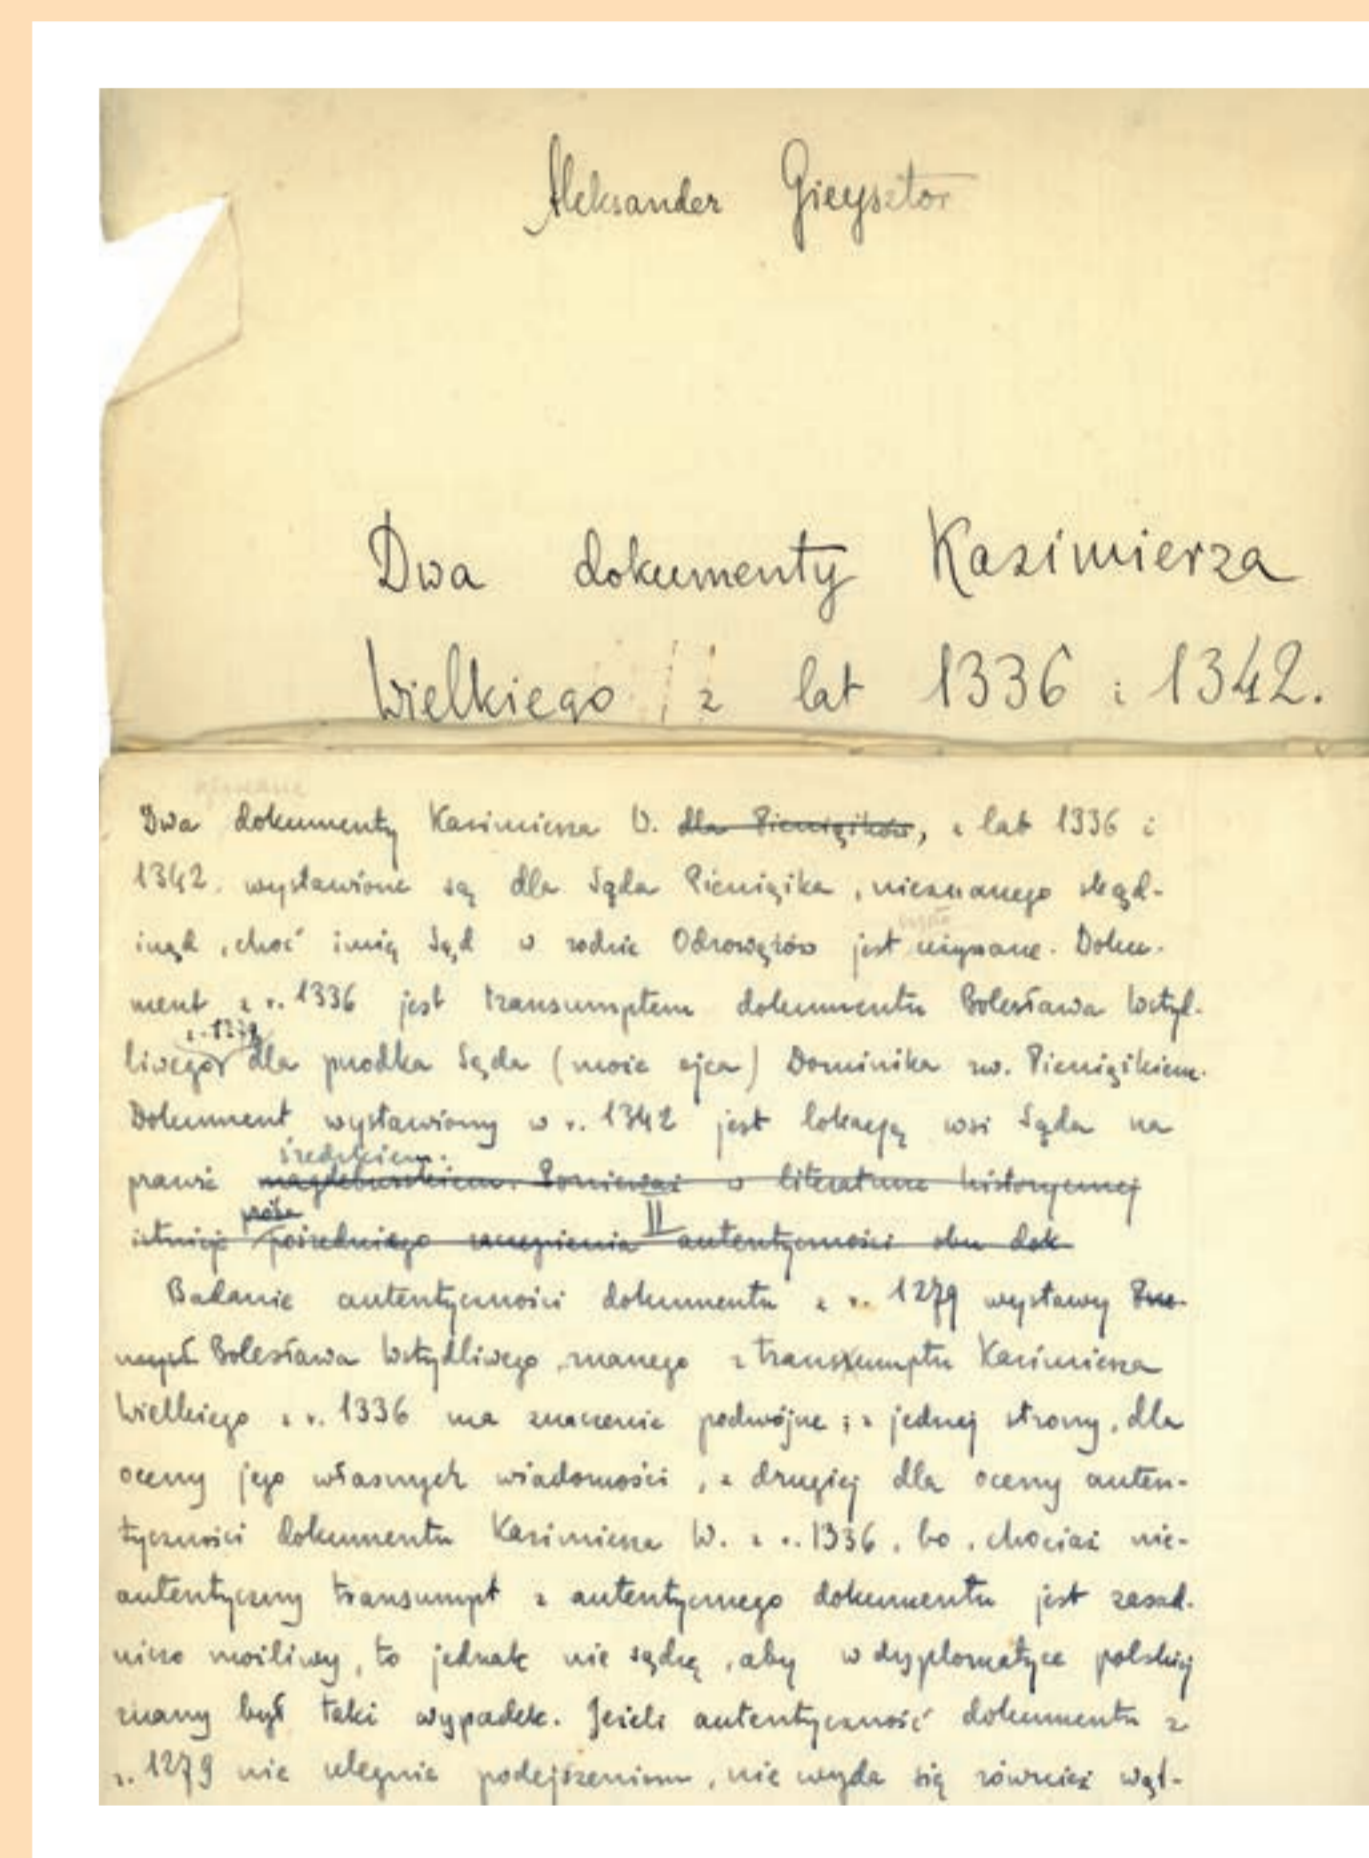 Aleksander Gieysztor
Dwa dokumenty Kazimierza
Wielkiego z lat 1336 i 1342.
Dwa dokumenty Kazimierza W. dla Pieniążków, z lat 1336 i
1342. wystawione są dla Sąda Pieniążka, nieznanego skąd-
często
inąd, choć imię Sąd w rodzie Odrowążów jest używane. Doku-
ment z r. 1336 jest transumptem dokumentu Bolesława Wstyd-
z r. 1279
liwego dla przodka Sąda (może ojca) Dominika zw. Pieniążkiem.
Dokument wystawiony w r. 1342 jest lokacją wsi Sąda na
średzkiem.
prawie magdeburskiem. Ponieważ w literaturze historycznej
próba
istnieje pośredniego zaczepienia autentyczności obu dok
Badanie autentyczności dokumentu z r. 1279 wystawy Prze-
mysł Bolesława Wstydliwego, znanego z transumptu Kazimierza
Wielkiego z r. 1336 ma znaczenie podwójne; z jednej strony, dla
oceny jego własnych wiadomości, z drugiej dla oceny auten-
tyczności dokumentu Kazimierza W. z r. 1336, bo, chociaż nie-
autentyczny transumpt z autentycznego dokumentu jest zasad-
niczo możliwy, to jednak nie sądzę, aby w dyplomatyce polskiej
znany był taki wypadek. Jeżeli autentyczność dokumentu z
r. 1279 nie ulegnie podejrzeniom, nie wyda się również wąt-